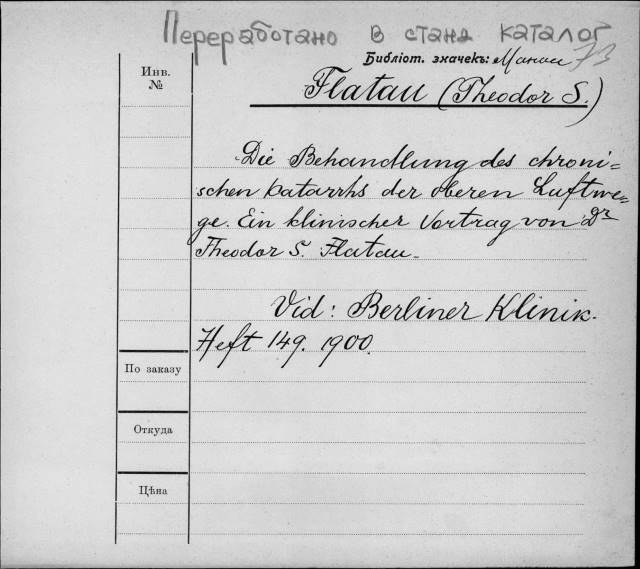 Переработано в станд каталог
Библіот. значекъ:
73
Инв.
№
Flatau (Theodor S.)
Die Behandlung des chroni=
schen Katarrhs der oberen Luftwe=
ge. Ein klinischer Vortrag von Dr
Theodor S. Flatau.
Vid: Berliner Klinik.
Heft 149. 1900.
По заказу
Откуда
Цѣна